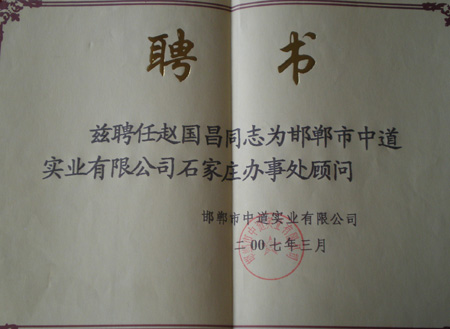 聘书
兹聘任赵国昌同志为邯郸市中道
实业有限公司石家庄办事处顾问
邯郸市中道实业有限公司
二00七年三月